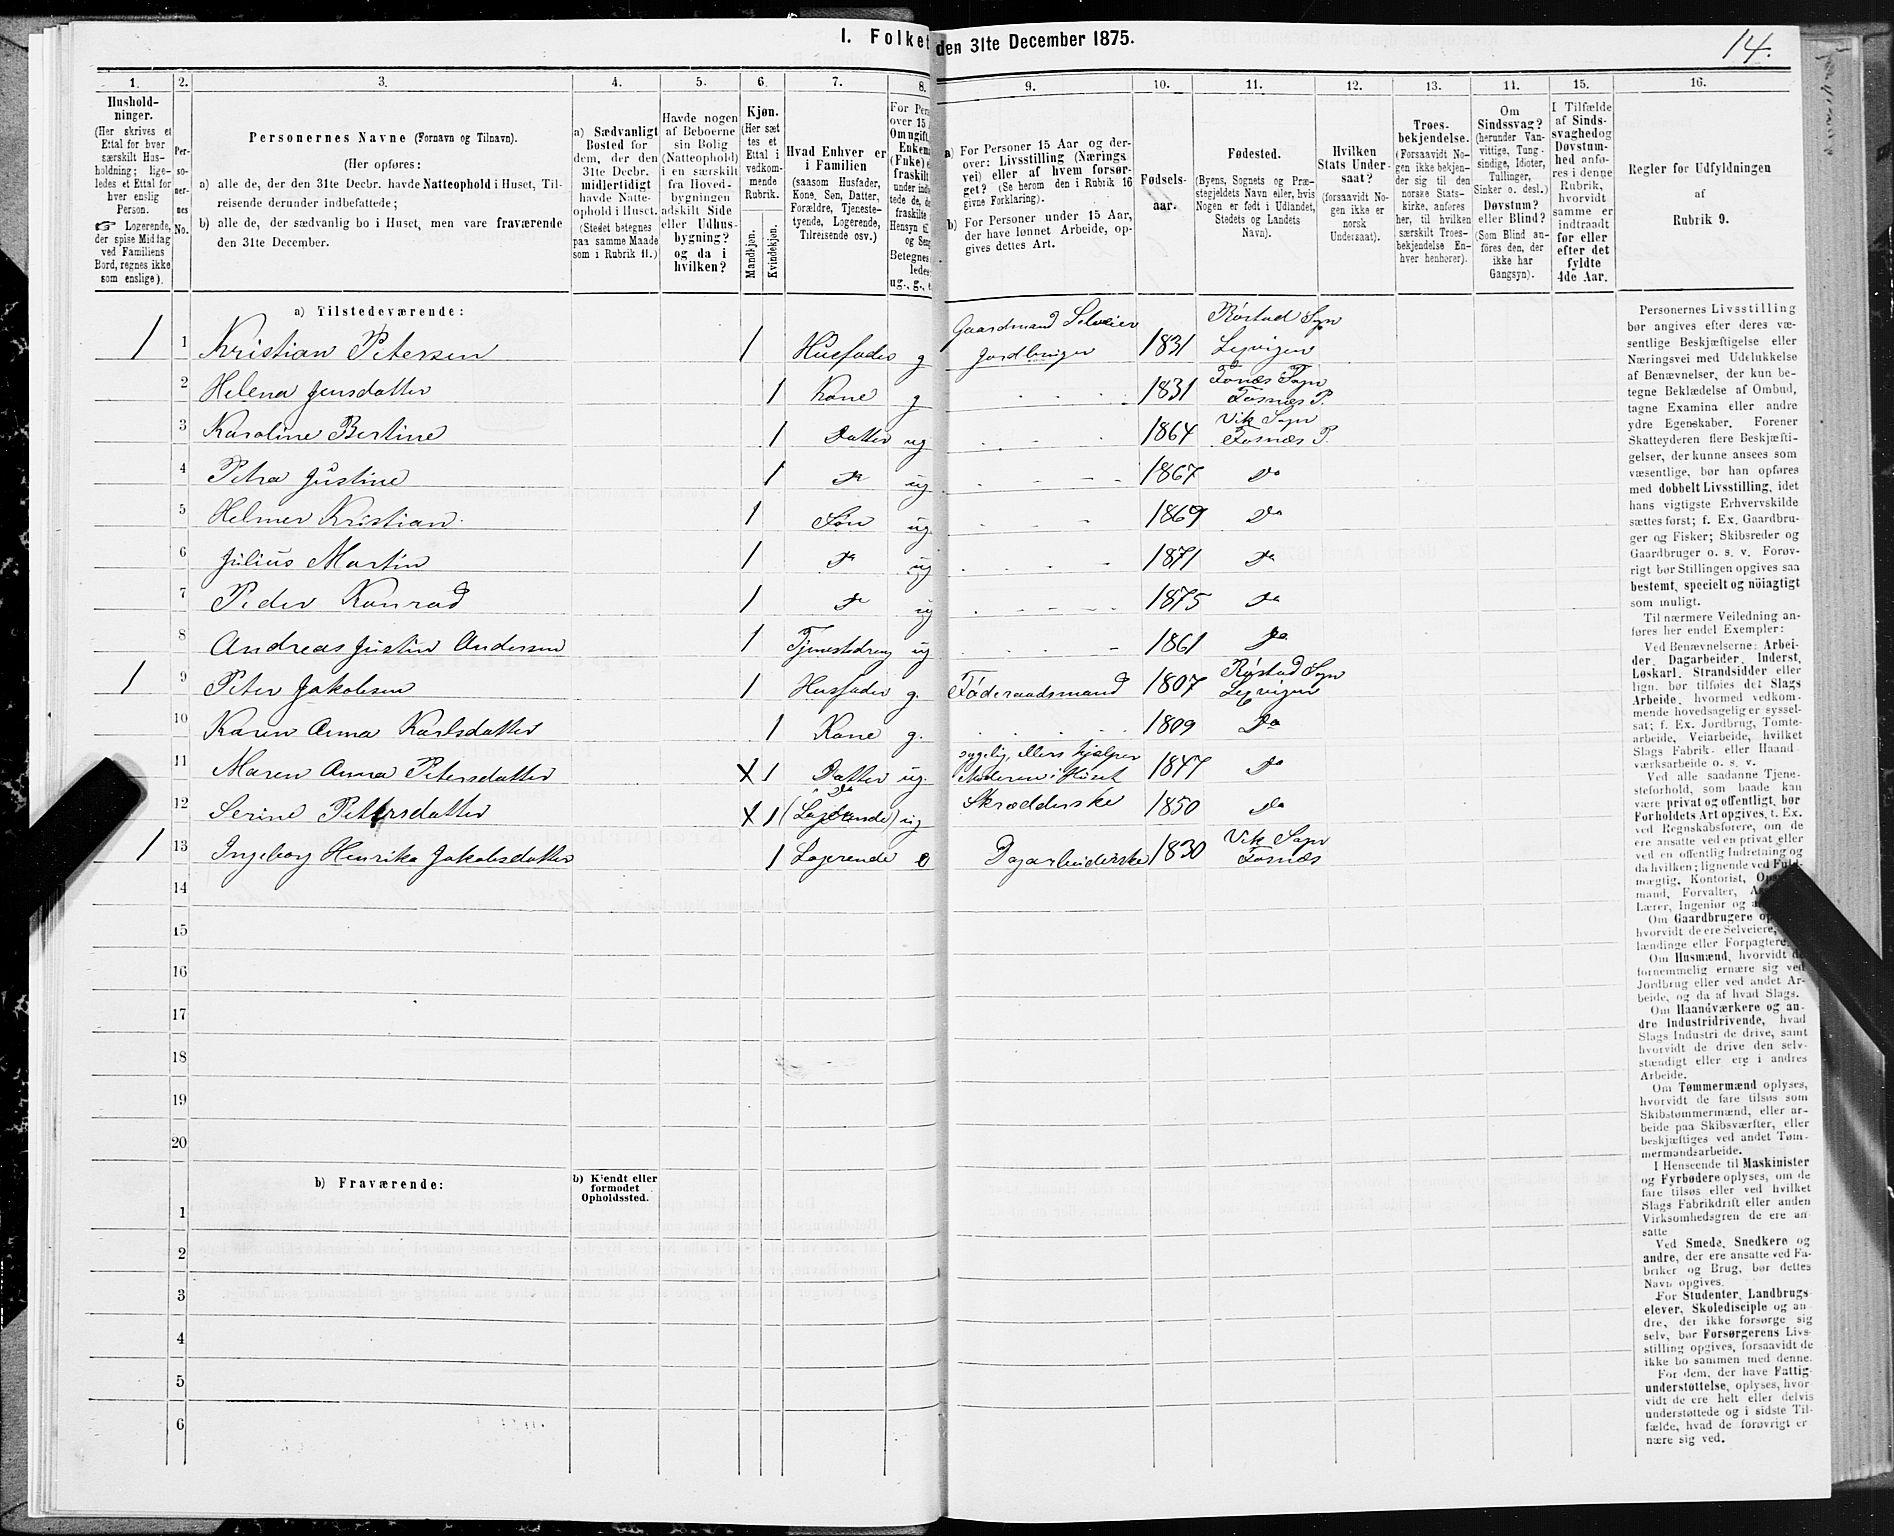 I. Folket den 31te December 1875.
14.
1.
2.
3.
4.
5.
6.
7.
8.
9.
10.
11.
12.
13.
14.
15.
16.
Hushold-
ninger.
(Her skrives et
Ettal for hver
særskilt Hus-
holdning; lige-
ledes et Ettal for
hver enslig
Person.
☞ Logerende,
der spise Middag
ved Familiens
Bord, regnes ikke
som enslige).
Per-
so-
ner-
nes
No.
Personernes Navne (Fornavn og Tilnavn).
(Her opføres:
a) alle de, der den 31te Decbr. havde Natteophold i Huset, Til-
reisende derunder indbefattede;
b) alle de, der sædvanlig bo i Huset, men vare fraværende
den 31te December.
a) Sædvanligt
Bosted for
dem, der den
31te Decbr.
midlertidigt
havde Natte-
ophold i Huset.
(Stedet betegnes
paa samme Maade
som i Rubrik 11.)
Havde nogen
af Beboerne
sin Bolig
(Natteophold)
i en særskilt
fra Hoved-
bygningen
adskilt Side
eller Udhus-
bygning?
og da i
hvilken?
Kjøn.
(Her sæt
tes et
Ettal i
vedkom-
mende
Rubrik.
Mandkjøn.
Kvindekjøn.
Hvad Enhver er
i Familien
(saasom Husfader,
Kone, Søn, Datter,
Forældre, Tjeneste-
tyende, Logerende,
Tilreisende osv.)
For Per
over 15
Om ugift,
Enkem
(Fuke) e
fraskilt
under ind
tede de, d
fraskilte
Hensyn til
og Seng
Betegnes
ledes
ug., g., e
a) For Personer 15 Aar og der-
over: Livsstilling (Nærings
vei) eller af hvem forsør-
get? (Se herom den i Rubrik 16
givne Forklaring).
b) For Personer under 15 Aar,
der have lønnet Arbeide, op-
gives dettes Art.
Fødsels-
aar.
Fødested.
(Byens, Sognets og Præ-
stegjeldets Navn eller, hvis
Nogen er født i Udlandet,
Stedets og Landets
Navn).
Hvilken
Stats Under-
saat?
(forsaavidt No-
gen ikke er
norsk
Undersaat).
Troes-
bekjendelse.
(Forsaavidt No-
gen ikke bekjen-
der sig til den
norske Stats-
kirke, anføres
her, til hvilken
særskilt Troes-
bekjendelse En-
hver henhører).
Om
Sindssvag?
(herunder Van-
vittige, Tung-
sindige, Idioter,
Tullinger,
Sinker o. desl.)
Døvstum?
eller Blind?
(Som Blind an-
føres den, der
ikke har
Gangsyn).
I Tilfælde
af Sinds-
svaghed og
Døvstum-
hed anfø-
res i denne
Rubrik,
hvorvidt
samme er
indtraadt
før eller
efter det
fyldte
4de Aar.
Regler for Udfyldningen
af
Rubrik 9.
a) Tilstedeværende:
1 1 Kristian Petersen 1 Husfader g Gaardmand Selveier Jordbruger 1831 Røstad Sogn Lexvigen
2 Helena Jensdatter 1 Kone g 1831 Fosnæs Sogn Fosnæs P.
3 Karoline Bertine 1 Datter ug 1864 Vik Sogn Fosnæs P.
4 Petra Justine 1 Do ug 1867 Do
5 Helmer Kristian 1 Søn ug 1869 Do
6 Julius Martin 1 Do ug 1871 Do
7 Peder Konrad 1 Do ug 1875 Do
8 Andreas Justin Andersen 1 Tjenestedreng ug 1861 Do
1 9 Peter Jakobsen 1 Husfader g. Føderaadsmand 1807 Røstad Sogn Lexvigen
10 Karen Anna Karlsdatter 1 Kone g. 1809 Do
11 Maren Anna Petersdatter X 1 Datter ug. sygelig, ellers hjælper Moderen i Huset 1847 Do
12 Serine Petersdatter X 1 Do (Logerende) ug Skrædderske 1850 Do
1 13 Ingeborg Henrika Jakobsdatter 1 Logerende e Dagarbeiderske 1830 Vik Sogn Fosnæs
14
15
16
17
18
19
20
b) Fraværende:
b) Kjendt eller
formodet
Opholdssted.
1
2
3
4
5
6
Personernes Livsstilling
bør angives efter deres væ-
sentlige Beskjæftigelse eller
Næringsvei med Udelukkelse
af Benævnelser, der kun be-
tegne Beklædelse af Ombud,
tagne Examina eller andre
ydre Egenskaber. Forener
Skatteyderen flere Beskjæfti-
gelser, der kunne ansees som
væsentlige, bør han opføres
med dobbelt Livsstilling, idet
hans vigtigste Erhvervskilde
sættes først; f. Ex. Gaardbru-
ger og Fisker; Skibsreder og
Gaardbruger o. s. v. Forøv-
rigt bør Stillingen opgives saa
bestemt, specielt og nøiagtigt
som muligt.
Til nærmere Veiledning an-
føres her endel Exempler:
Ved Benævnelserne: Arbei-
der, Dagarbeider, Inderst,
Løskarl, Strandsidder eller
lign. bør tilføies det Slags
Arbeide, hvormed vedkom-
mende hovedsagelig er syssel-
sat; f. Ex. Jordbrug, Tomte-
arbeide, Veiarbeide, hvilket
Slags Fabrik- eller Haand-
værksarbeide o. s. v.
Ved alle saadanne Tjene-
steforhold, som baade kan
være privat og offentligt, bør
Forholdets Art opgives, t. Ex.
ved Regnskabsførere, om de
ere ansatte ved en privat eller
ved en offentlig Indretning og
da hvilken; lignende ved Fuld-
mægtig, Kontorist,
mand, Forvalter,
Lærer, Ingeniør og
Om Gaardbrugere
hvorvidt de ere Selveiere,
lændinge eller Forpagtere.
Om Husmænd, hvorvidt de
fornemmelig ernære sig ved
Jordbrug eller ved andet Ar-
beide, og da af hvad Slags.
Om Haandværkere og an-
dre Industridrivende, hvad
Slags Industri de drive, samt
hvorvidt de drive den selv-
stændigt eller ere i andres
Arbeide.
Om Tømmermænd oplyses,
hvorvidt de fare tilsøs som
Skibstømmermænd, eller ar-
beide paa Skibsværfter, eller
beskjæftiges ved andet Tøm-
mermandsarbeide.
I Henseende til Maskinister
og Fyrbødere oplyses, om de
fare tilsøs eller ved hvilket
Slags Fabrikdrift eller anden
Virksomhedsgren de ere an-
satte
Ved Smede, Snedkere og
andre, der ere ansatte ved Fa-
briker og Brug, bør dettes
Navn opgives.
For Studenter, Landbrugs-
elever, Skoledisciple og an-
dre, der ikke forsørge sig
selv, bør Forsørgerens Livs-
stilling opgives, forsaavidt de
ikke bo sammen med denne.
For dem, der have Fattig-
understøttelse, oplyses, hvor-
vidt de ere helt eller delvis
understøttede og i sidste Til-
fælde, hvad de forøvrigt er
nære sig ved.